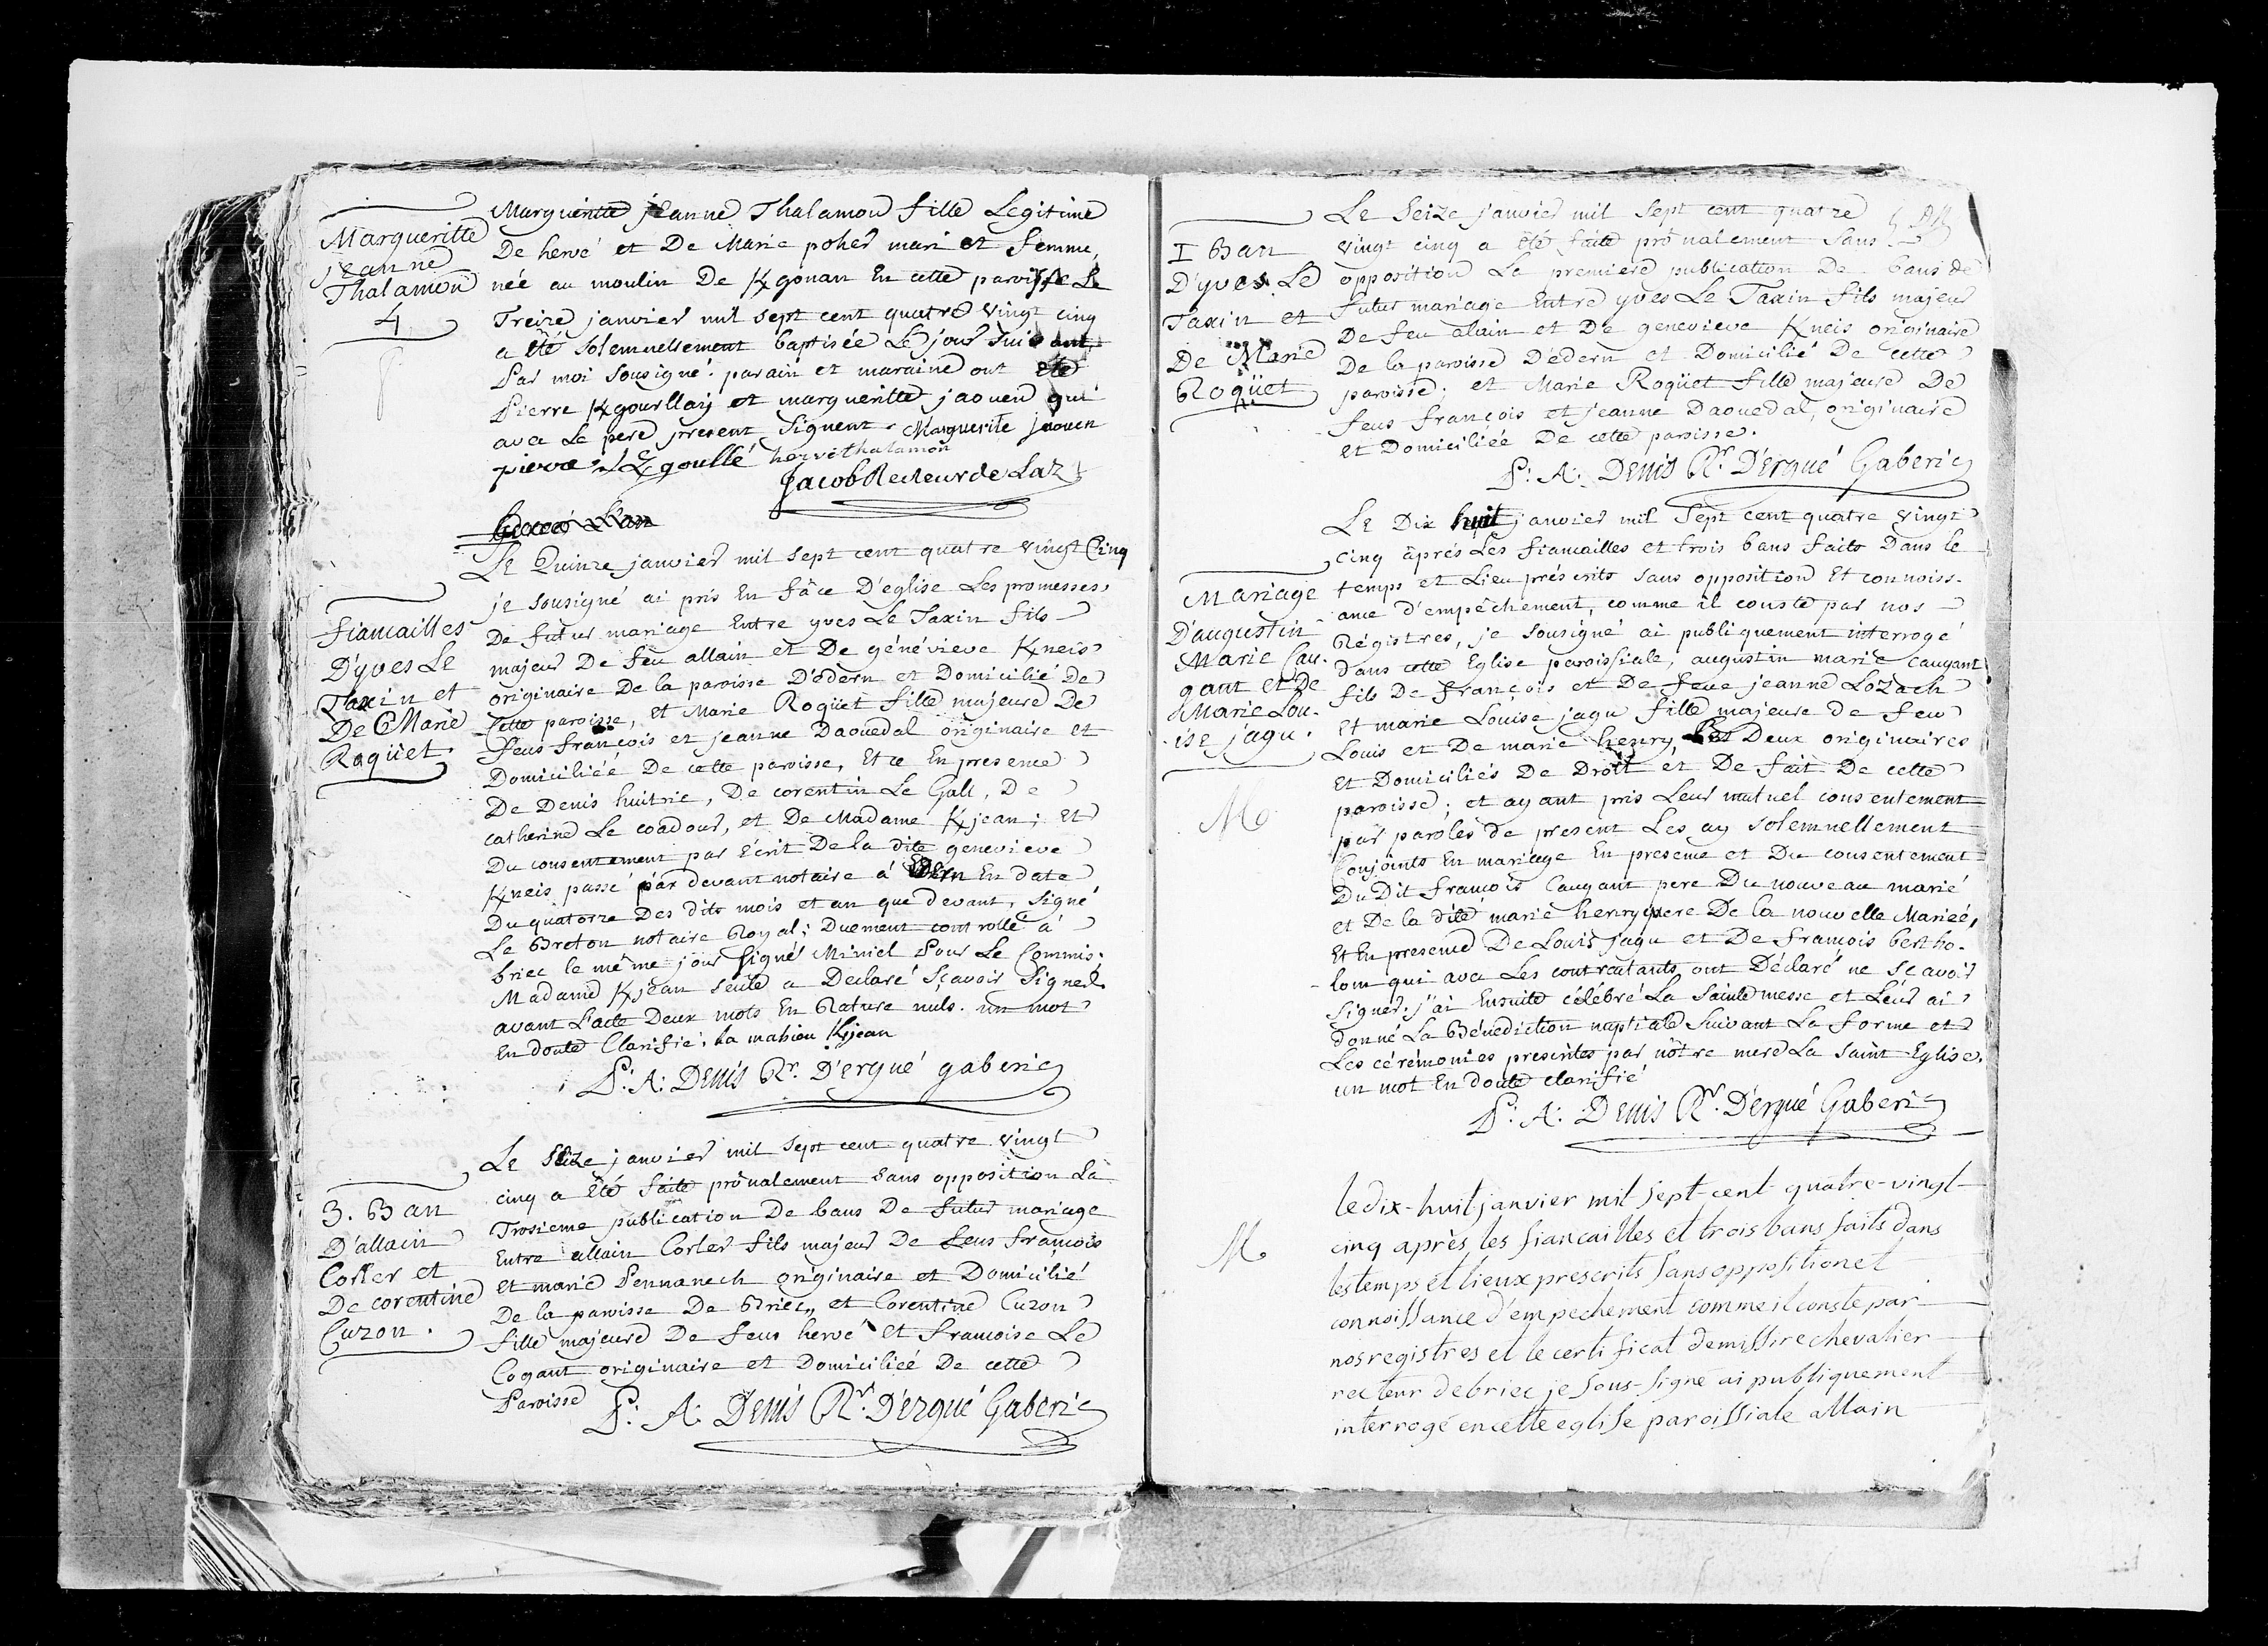 Margueritte
jeanne
Thalamon
4
Margueritte jeanne Thalamon fille Legitime
De hervé et De Marie poher mari et femme,
née au moulin De Kgonan En cette paroisse Le
Treize janvier mil sept cent quatre vingt cinq
a été solemnellement baptisée Le jour suivant
Par moi sousigné: parain et maraine ont été
Pierre Kgourllay et margueritte jaouen qui
avec Le pere present signent. Marguerite jaouen
pierre goullé hervé thalamon
Jacob Recteur de Laz
fiancailles
D'yves Le
Taxin et
De Marie
Roqüet.
Le Quinze janvier mil sept cent quatre vingt Cinq
je sousigné ai pris En fâce D'eglise Les promesses
De futur mariage Entre yves Le Taxin fils
majeur De feu allain et De généviève Kneis
originaire De la paroisse D'edern et Domicilié De
Cette paroisse, et Marie Roqüet fille majeure De
feus françois et jeanne Daouedal originaire et
Domiciliée De cette paroisse, Et ce En presence
De Denis huitric, De corentin Le Gall, De
catherine Le coadour, et De Madame Kjean; Et
Du consentement par écrit De la dite genevieve
Kneis passé par devant notaire á Edern En date
Du quatorze Des dits mois et an que devant, signé
Le Breton notaire Royal; Duement controllé á
briec le même jour signé Miniel Pour Le Commis.
Madame Kjean seule a Declaré sçavoir signer
avant L'acte Deux mots En Rature nuls. un mot
En doute Clarifié. La mahieu Kjean
P: A: Denis Rr. D'ergué gaberic
3. Ban
D'allain
Corler et
De corentine
Cuzon.
Le seize janvier mil sept cent quatre vingt
cinq a été faite prônalement sans opposition La
Trosieme publication De bans De futur mariage
Entre allain Corler fils majeur De feus francois
et marie Pennanech originaire et Domicilié
De la paroisse De Briec, et Corentine Cuzon
fille majeure De feus hervé et francoise Le
Cogant originaire et Domiciliée De cette
Paroisse P: A: Denis Rr. D'ergué Gaberic
I Ban
D'yves Le
Taxin et
De Marie
Roqüet
Le seize janvier mil sept cent quatre
vingt cinq a été faite prônalement sans
opposition La premiere publication De bans de
futur mariage Entre yves Le Taxin fils majeur
De feu alain et De genevieve Kneis originaire
De la paroisse D'edern et Domicilié De cette
paroisse; et Marie Roqüet fille majeure De
feus françois et jeanne Daouedal, originaire
et Domiciliée De cette paroisse.
P: A: Denis Rr. D'ergué Gaberic
Mariage
D'augustin
Marie Cau-
gant et De
Marie Lou-
ise jagu.
M
Le Dix huit janvier mil sept cent quatre vingt
cinq âprés Les fiancailles et trois bans faits Dans le
temps et Lieu préscrits sans opposition Et connoiss-
ance d'empêchement, comme il conste par nos
Régistres, je sousigné ai publiquement interrogé
dans cette Eglise paroissiale, augustin marie caugant
fils De François et De feue jeanne Lozach
Et marie Louise jagu fille majeure de feu
Louis et De marie henry, Les Deux originaires
et Domiciliés De Droit et De fait De cette
paroisse; et ayant pris Leur mutuel consentement
par paroles de present Les ay solemnellement
Conjoints En mariage En presence et Du consentement
Du Dit francois Caugant pere Du nouveau marié
et De la dite marie henry mere De la nouvelle Mariée,
et En presence De Louis jagu et De françois bertho-
lom qui avec Les contractants ont Déclaré ne sçavoir
signer. j'ai Ensuite célébré La sainte messe et Leur ai
donné La Bénédiction nuptiale suivant La forme et
Les cérémonies prescrites par nôtre mere La saint Eglise.
un mot En doute clarifié
P: A: Denis Rr. D'ergué Gaberic
M
le dix-huit janvier mil sept-cent quatre-vingt
cinq après les fiancailles et trois bans faits dans
les temps et lieux prescrits sans opposition et
connoissance d'empechement comme il conste par
nos registres et le certificat de missire chevalier
recteur de briec je sous-signe ai publiquement
interrogé en cette eglise paroissiale allain